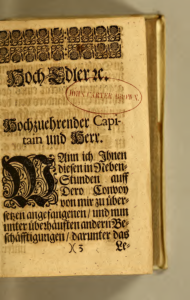 Hoch-Edler ꝛc.
JOHN CARTER BROWN
Hochzuehrender Capi-
tain und Herr.
WAnn ich Ihnen
diesen in Neben-
Stunden auff
Dero Convoy
von mir zu über-
setzen angefangenen / und nun
unter überhäufften andern Be-
schäfftigungen / darunter das
)( 3 Le-